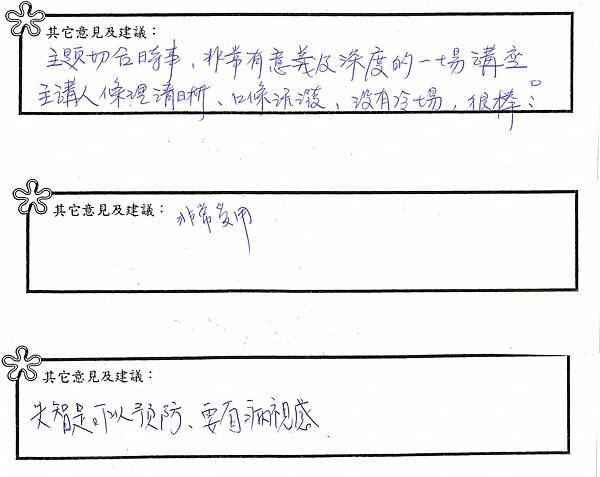 其它意見及建議：
主題切合時事、非常有意義及深度的一場講座。
主講人條理清晰、口條活潑、沒有冷場，很棒！
其它意見及建議： 非常受用
其它意見及建議：
失智是可以預防、要有病視感